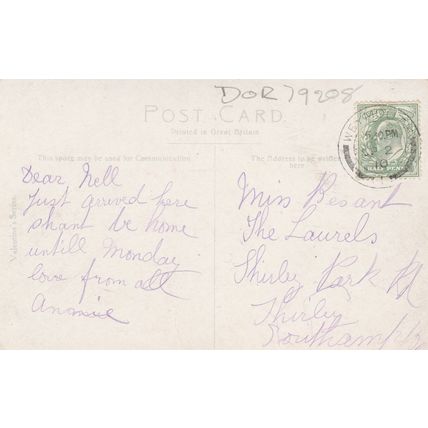 DOR 79208
POST CARD.
Printed in Great Britain
This space may be used for Communication
The Address to be written here
Valentine's Series
Dear Nell
Just arrived here
shant be home
untill Monday
love from all
Annie
Miss Besant
The Laurels
Shirley Park Rd
Shirley
Southampton
HALF PENNY